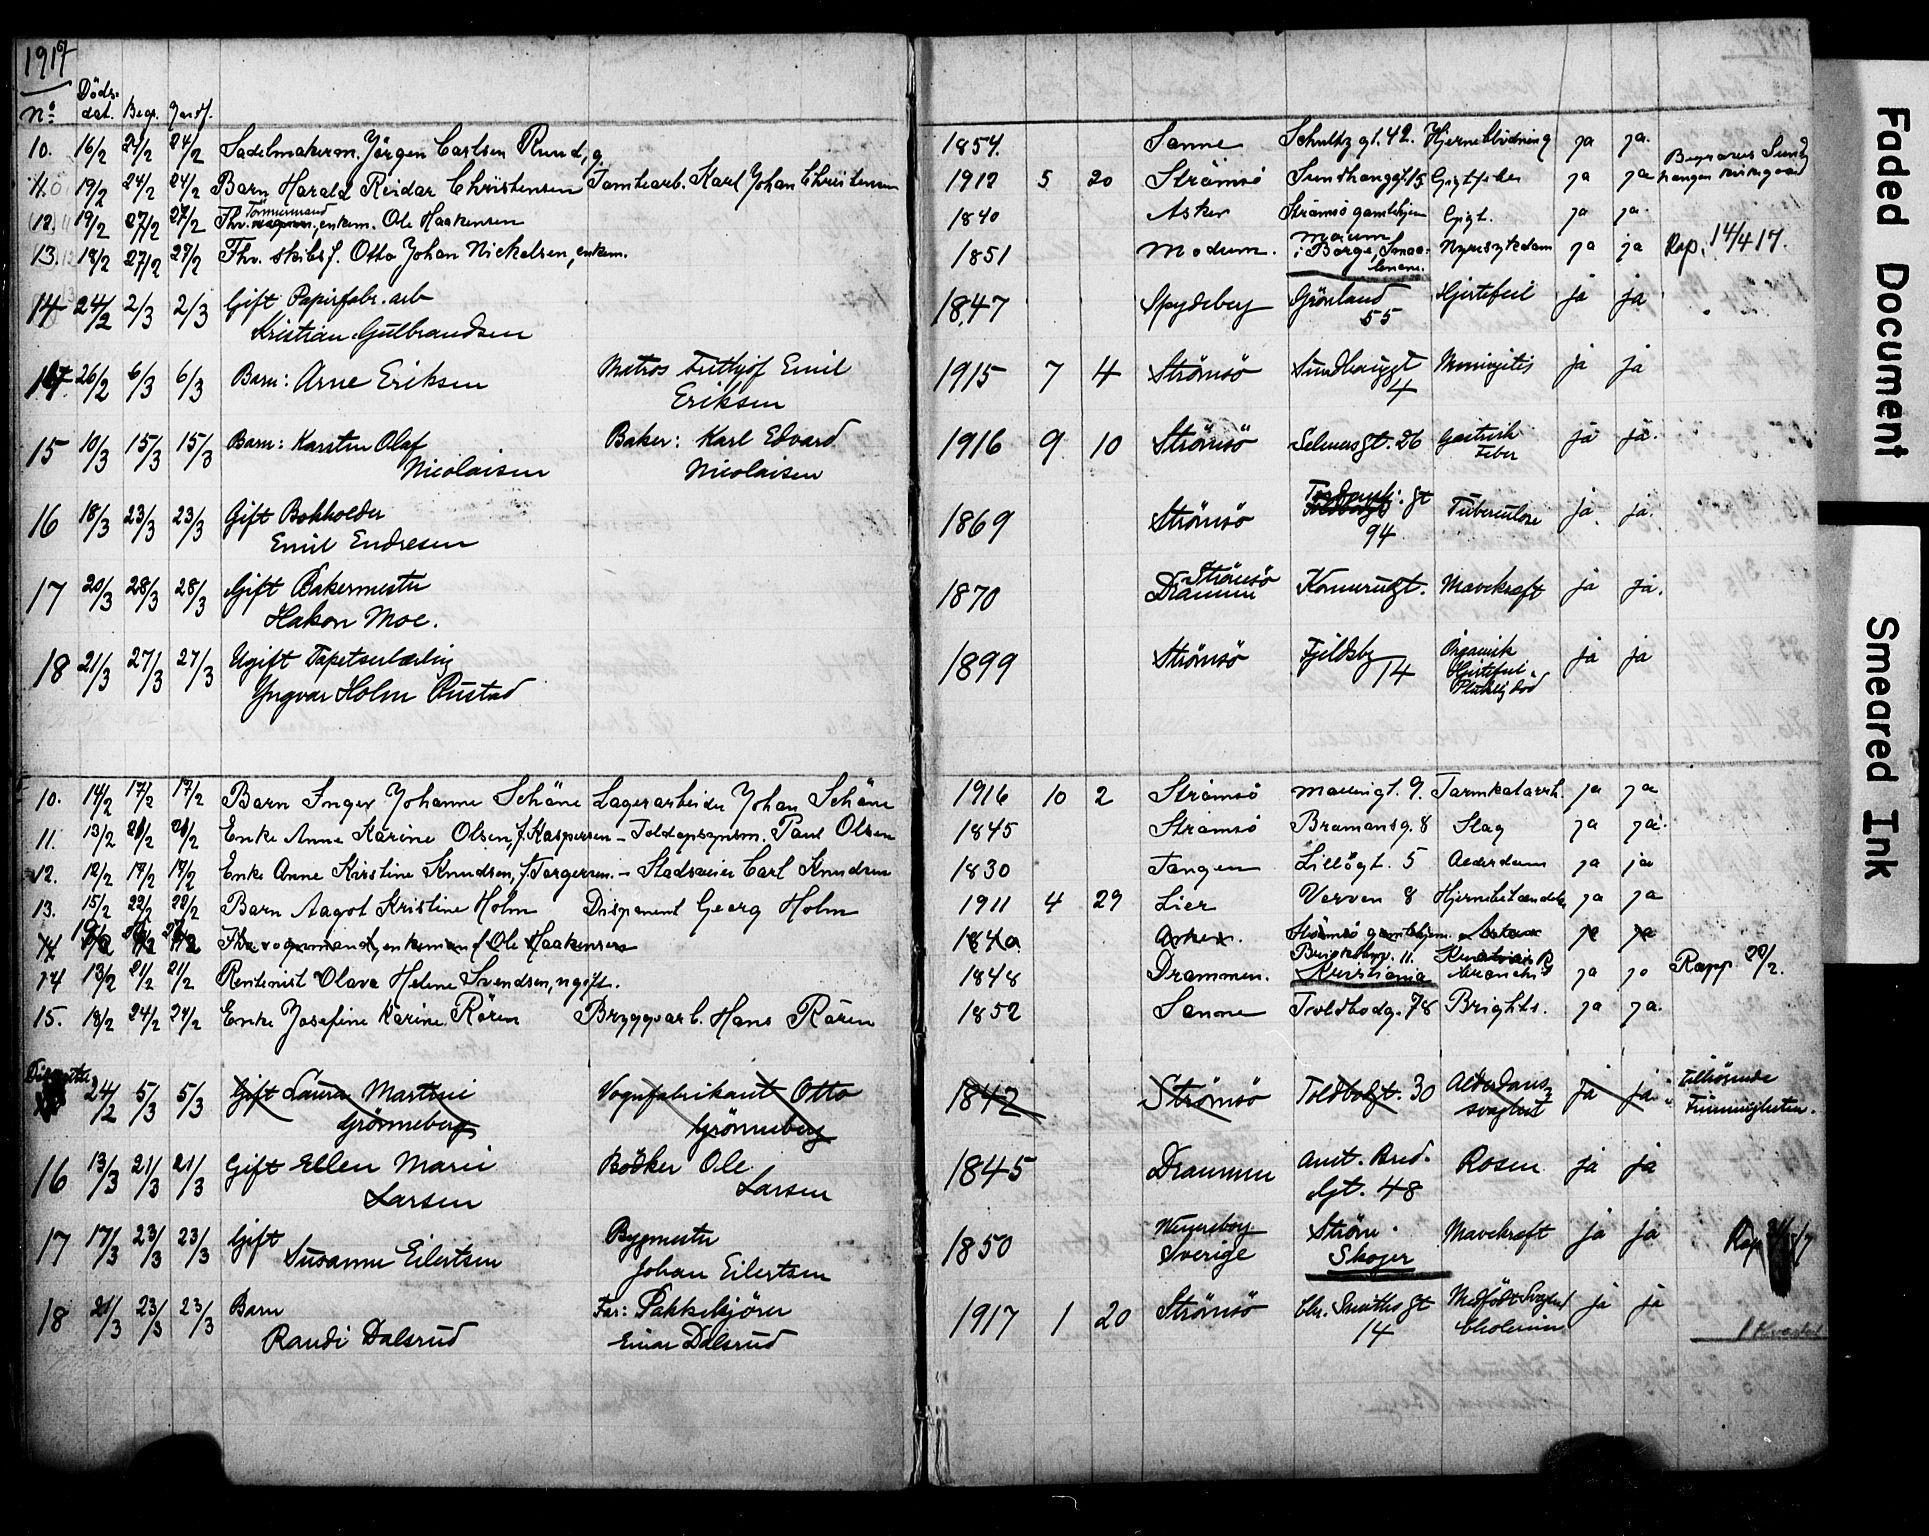 1917
No Döds-dat. Begr. Jordf.
10. 16/2 24/2 24/2 Sadelmakerm. Jörgen Carlsen Rund, g. 1854. Sanne Schultz gt. 42. Hjerneblödning ja ja.
11. 19/2 24/2 24/2 Barn Harald Reidar Christensen Tomtearb. Karl Johan Christensen 1912 5 20 Strömsö Sundhauggt. 15 Gigtfeber ja ja Begraves Sund
haugen kirkegaard
12. 19/2 27/2 27/2 Fhv. Tömmermand, enkem. Ole Haakensen 1840 Asker Strömsö gamlehjem Gigt. ja ja.
13. 18/2 27/2 27/2 Fhv. skibsf. Otto Johan Nickelsen, enkem. 1851 Modum. i Borge, Smaa-
lenene. Nyresykdom ja ja Rap. 14/4 17.
14 24/2 2/3 2/3 Gift Papirfabr. arb 1847 Spydeberg Grönland
55 Hjertefeil ja ja
Kristian Gulbrandsen
26/2 6/3 6/3 Barn: Arne Eriksen Matros Frithjof Emil
Eriksen 1915 7 4 Strömsö Sundhauggt
4 Meningitis ja ja
15 10/3 15/3 15/3 Barn: Karsten Olaf
Nicolaisen Baker: Karl Edvard
Nicolaisen 1916 9 10 Strömsö Selmersgt. 26 Gastrisk
Feber ja ja.
16 18/3 23/3 23/3 Gift Bokholder
Emil Endresen 1869 Strömsö gt
94 Tuberculose ja. ja.
17 20/3 28/3 28/3 Gift Bakermester
Hakon Moe. 1870 Strömsö
Drammen Konnerudgt. Mavekræft ja ja.
18 21/3 27/3 27/3 Ugift Tapetserlærling
Yngvar Holm Rustad 1899 Strömsö Fjeldsby
14 Organisk
Hjertefeil
Pludselig död ja ja
10. 14/2 17/2 17/2 Barn Inger Johanne Schöne Lagerarbeider Johan Schöne 1916 10 2 Strömsö Mælingt. 9. Tarmkatarrh. ja ja
11. 13/2 21/2 21/2 Enke Anne Karine Olsen, f. Kaspersen – Toldopsynsm. Paul Olsen 1845 Strömsö Bramansg. 8 Slag ja ja.
12. 12/2 17/2 17/2 Enke Anne Kirstine Knudsen, f. Torgersen. – Stadsveier Carl Knudsen 1830 Tangen Lillögt. 5 Alderdom ja ja
13. 15/2 22/2 22/2 Barn Aagot Kristine Holm Disponent Georg Holm 1911 4 29 Lier Verven 8 Hjernebetændelse ja ja
14 Fhv vognmand, enkemand Ole Haakensen 1840 Asker. Strömsö gamlehjem. ja ja
14 13/2 21/2 21/2 Rentenist Olava Helene Svendsen, ugift. 1848 Drammen. Kristiania ja ja Rapp 22/2.
15. 18/2 24/2 24/2 Enke Josefine Karine Rören Bryggearb. Hans Rören 1852 Sanne Toldbodg. 78 Brights. ja ja.
24/2 5/3 5/3 Gift Laura Martine
Grönneberg Vognfabrikant Otto
Grönneberg 1842 Strömsö Toldbodgt. 30 Alderdoms
svaghet ja ja tilhörende
Frimenigheten.
16 13/3 21/3 21/3 Gift Ellen Marie
Larsen Bödker Ole
Larsen 1845 Drammen
Gt. 48 Rosen ja ja
17 17/3 23/3 23/3 Gift
Susanne Eilertsen Bygmester
Johan Eilertsen 1850 Wenersborg
Sverige Ström.
Skoger Mavekræft ja ja
18 21/3 23/3 23/3 Barn
Randi Dalsrud Far: Pakkekjörer
Einar Dalsrud 1917 1 20 Strömsö Chr. Smithsgt
14 Medfödt Svaghet
Cholerine ja ja
1 Kvartal
Faded Document
Smeared Ink